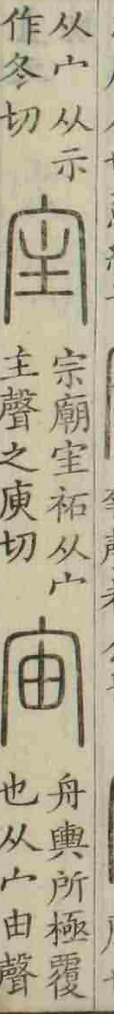 从宀从示
作冬切
宔
宗廟宔祏从宀
主聲之庾切
宙
舟輿所極覆
也从宀由聲